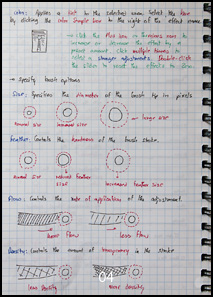 Color: Applies a tint to the selected area. Select the hue
by clicking the color sample box to the right of the effect name.
→ click the Plus icon or Minus icon to
increase or decrease the effect by a
preset amount. Click multiple times to
select a stronger adjustments. Double-click
the slider to reset the effects to zero.
→ Specify brush options
Size: Specifies the diameter of the brush tip in pixels
normal size
increased size
larger size
Feather: Controls the hardness of the brush stroke
normal size
reduced feather
size
increased feather size
Flow: Controls the rate of application of the adjustment.
more flow
less flow
Density: Controls the amount of transparency in the stroke
less density
more density
64